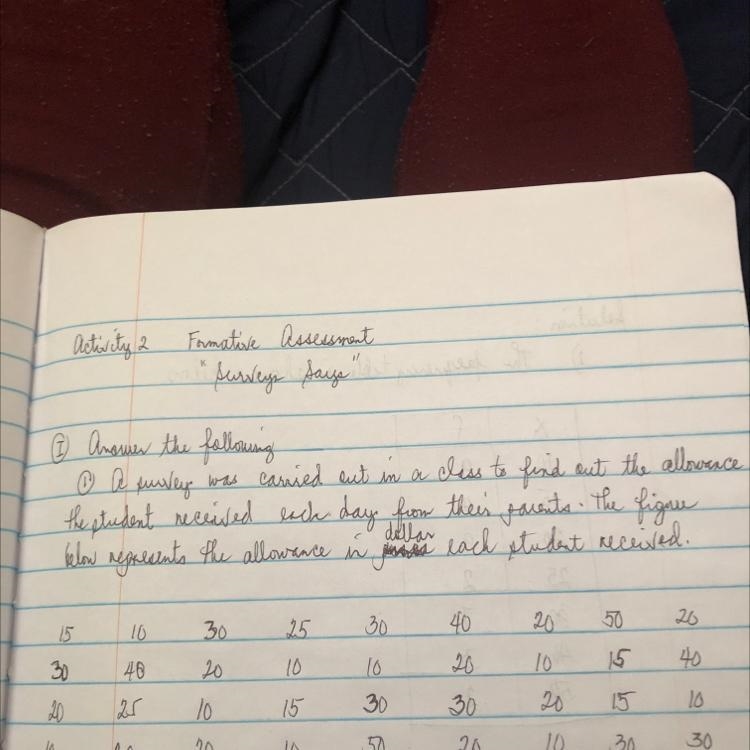 Activity 2 Formative Assessment
"Surveys Says"
I Answer the following
1) A survey was carried out in a class to find out the allowance
the student received each day from their parents. The figure
below represents the allowance in dollar each student received.
15 10 30 25 30 40 20 50 20
30 40 20 10 10 20 10 15 40
20 25 10 15 30 30 20 15 10
20 10 50 20 10 30 30